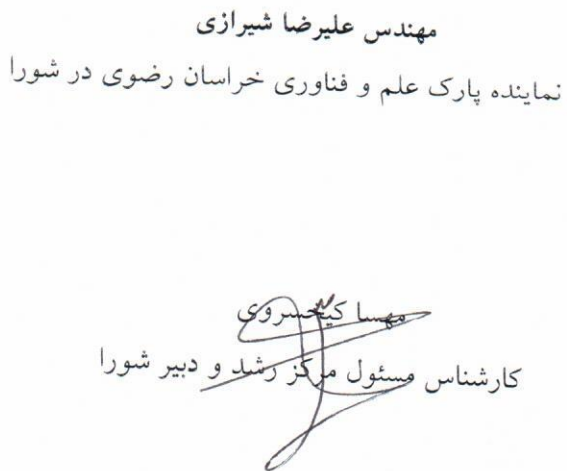 مهندس علیرضا شیرازی
نماینده پارک علم و فناوری خراسان رضوی در شورا
مهسا کیخسروی
کارشناس مسئول مرکز رشد و دبیر شورا